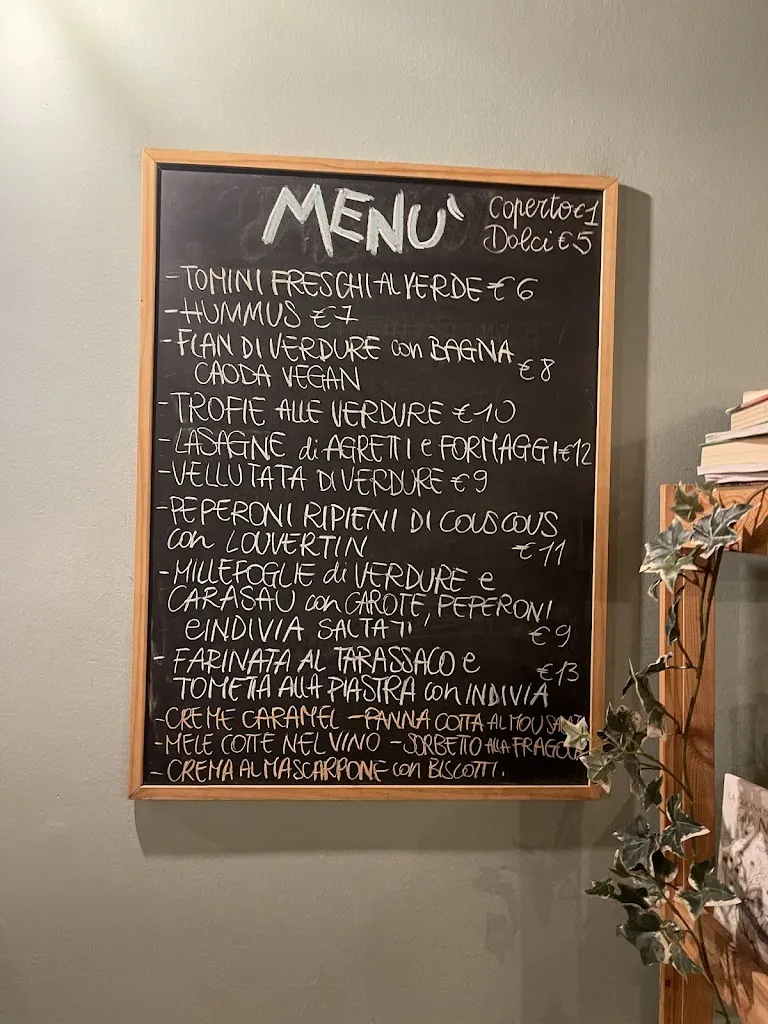 MENU'
Coperto €1
Dolci €5
- TOMINI FRESCHI AL VERDE €6
- HUMMUS €7
- FLAN DI VERDURE con BAGNA
CAODA VEGAN €8
- TROFIE ALLE VERDURE €10
- LASAGNE di AGRETTI e FORMAGGI €12
- VELLUTATA DI VERDURE €9
- PEPERONI RIPIENI DI COUS COUS
con LOUVERTIN €11
- MILLEFOGLIE di VERDURE e
CARASAU con CAROTE, PEPERONI
e INDIVIA SALTATI €9
- FARINATA AL TARASSACO e €13
TOMETTA ALLA PIASTRA con INDIVIA
- CREME CARAMEL - PANNA COTTA AL
- MELE COTTE NEL VINO - SORBETTO ALLA FRAGOLA
- CREMA AL MASCARPONE con BISCOTTI.